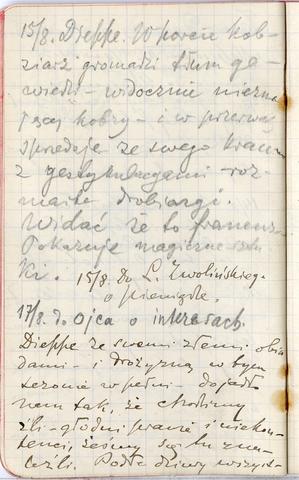 15/8. Dieppe. W porcie kob-
ziarz gromadzi tłum ga-
wiedzi – widocznie niezna
jącej kobzy – i w przerwach
sprzedaje ze swego
z gestykulacjami roz-
maite drobiazgi.
Widać że to francuz.
Pokazuje magiczne sztu
ki. 15/8. Do L. Zwolińskiego
o pieniądze.
17/8. Do Ojca o interesach.
Dieppe ze swemi złemi obia
dami – i drożyzną w tym
sezonie w pełni – dojadło
nam tak, że chodzimy
źli – głodni prawie i niekon-
tenci, żeśmy się tu zna-
leźli. Podłe dziwy